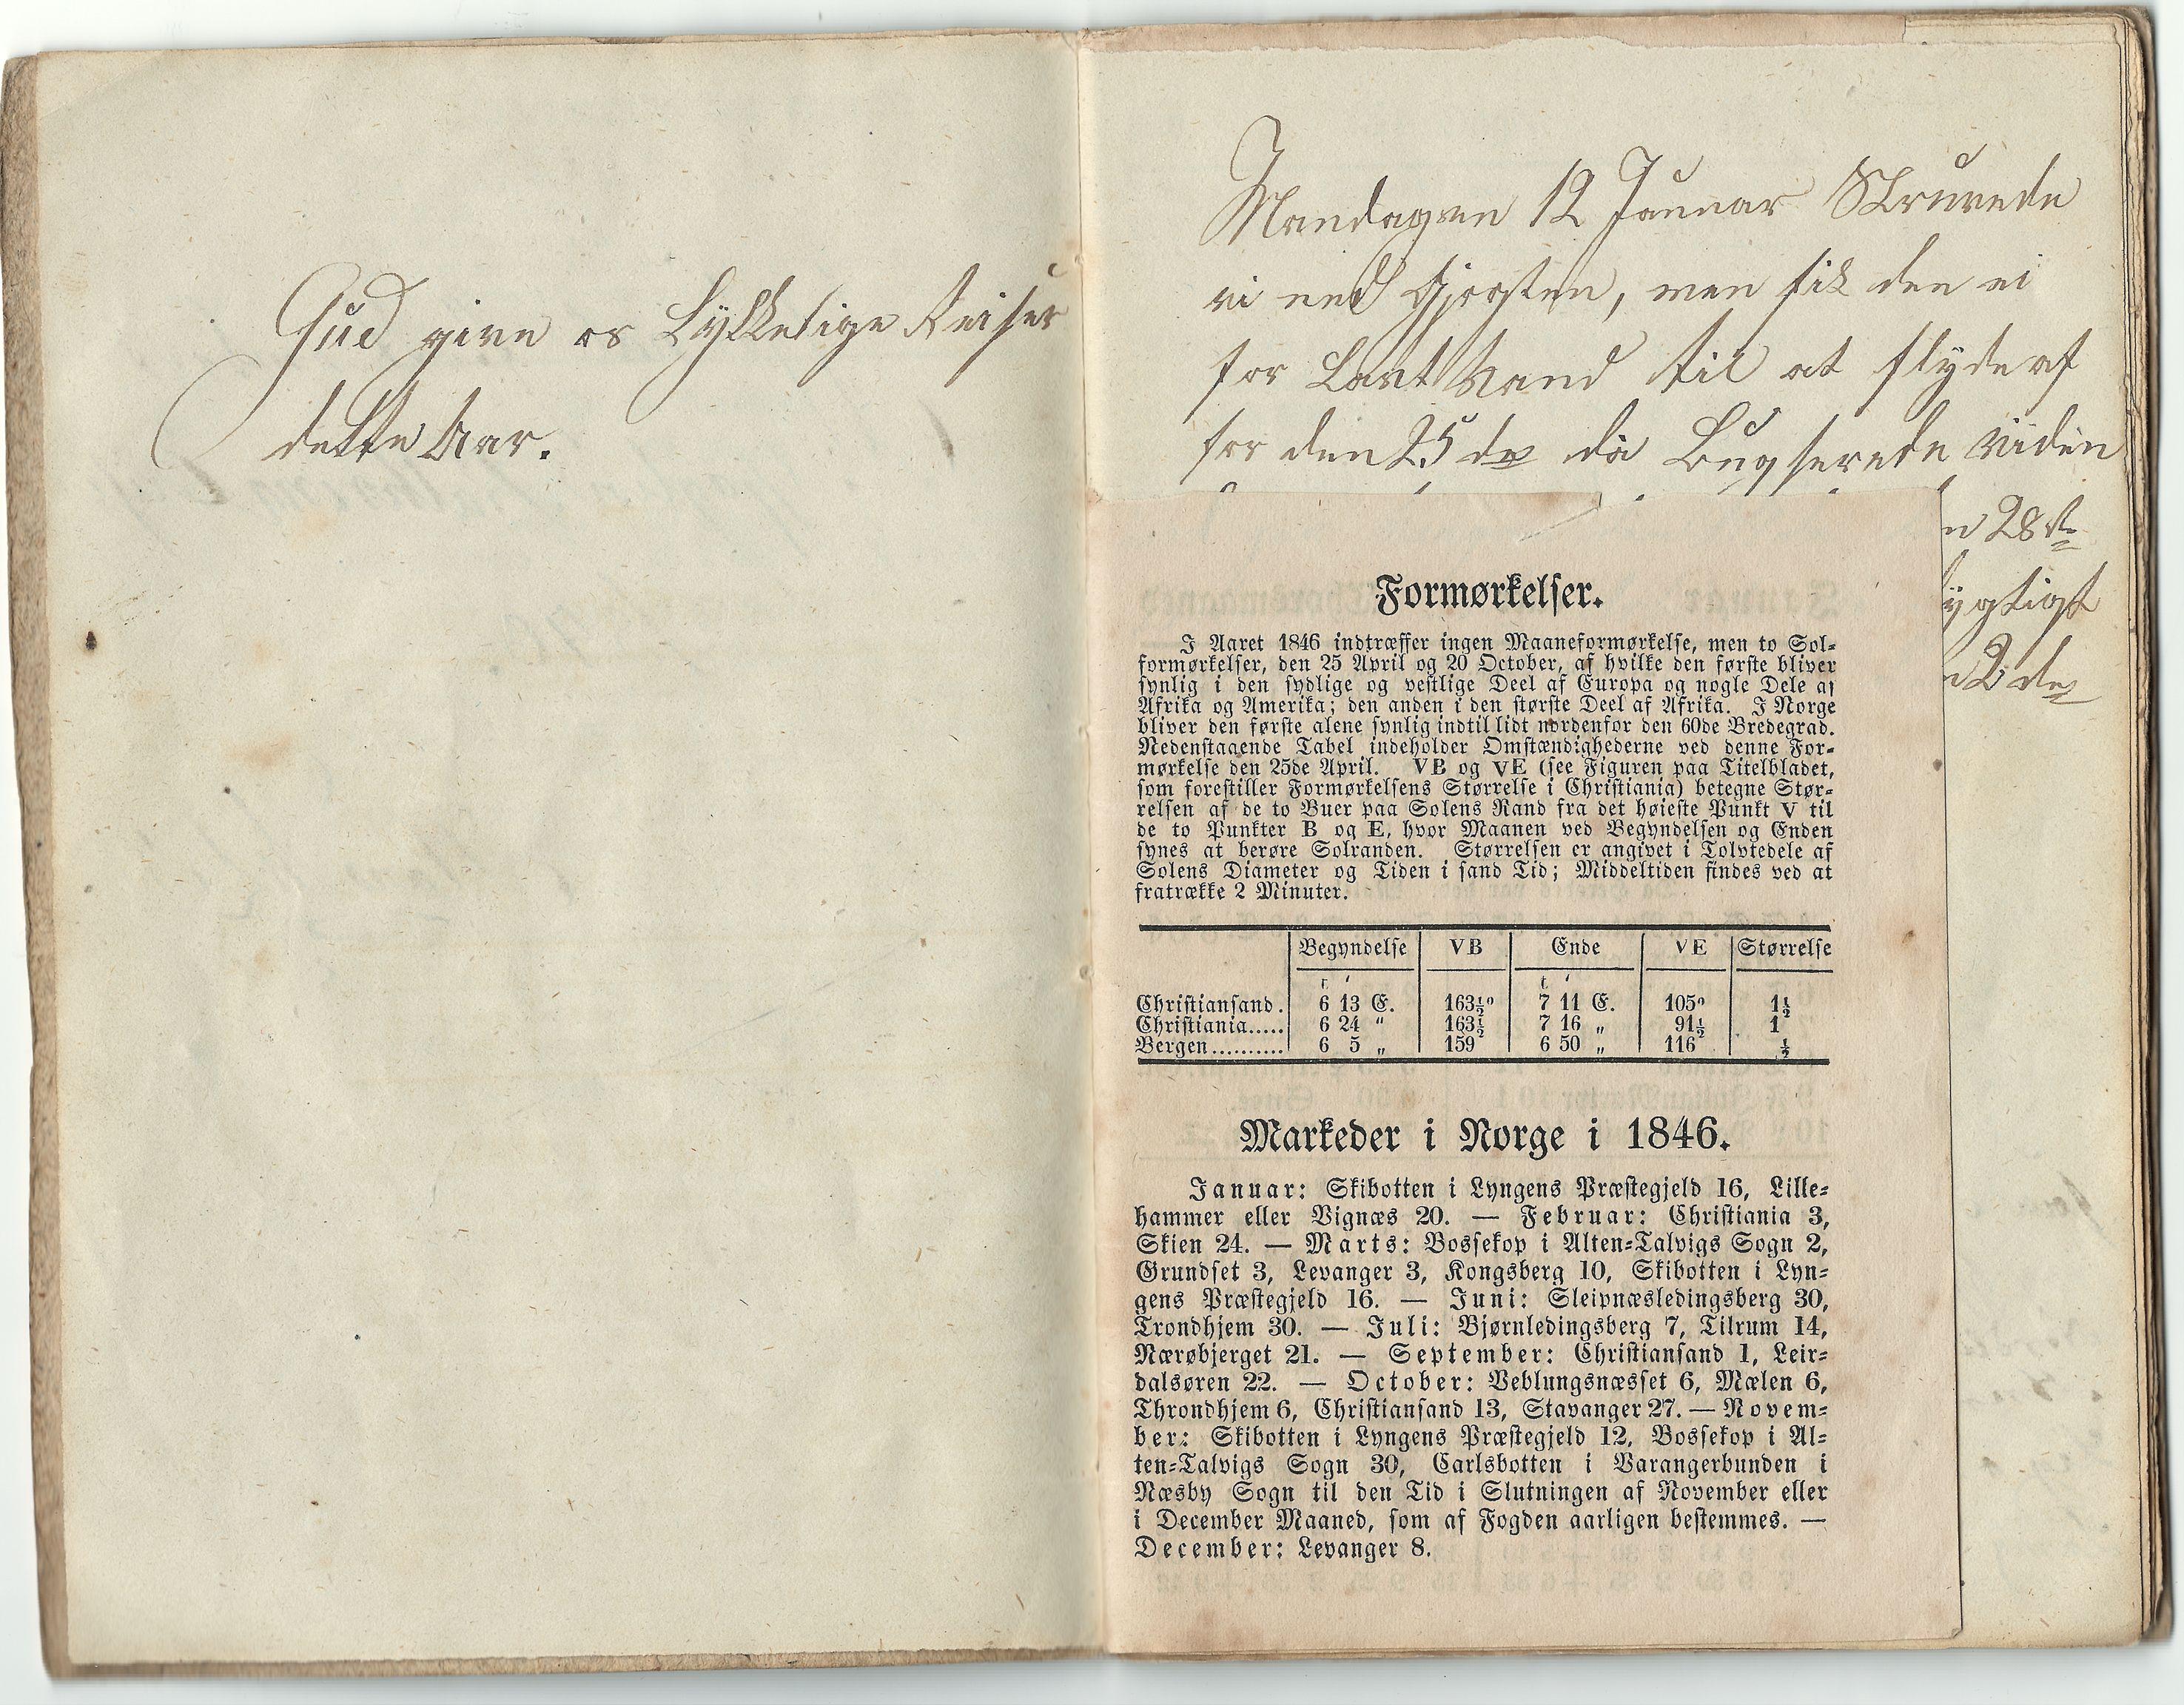 Gud give os Lykkelige Reiser
dette Aar.
Mandagen 12 Januar Skruvede
vi ned Gjøsten, men fik den ei
for Lavt Vand til at flyde af
for den 25 de da Bugserede vi den
n 28 de
ygtigt
n 2 de
Formørkelser.
I Aaret 1846 indtræffer ingen Maaneformørkelse, men to Sol-
formørkelser, den 25 April og 20 October, af hvilke den første bliver
synlig i den sydlige og vestlige Deel af Europa og nogle Dele af
Afrika og Amerika; den anden i den største Deel af Afrika. I Norge
bliver den første alene synlig indtil lidt nordenfor den 60de Bredegrad.
Nedenstaaende Tabel indeholder Omstændighederne ved denne For-
mørkelse den 25de April. VB og VE (see Figuren paa Titelbladet,
som forestiller Formørkelsens Størrelse i Christiania) betegne Stør-
relsen af de to Buer paa Solens Rand fra det høieste Punkt V til
de to Punkter B og E, hvor Maanen ved Begyndelsen og Enden
synes at berøre Solranden. Størrelsen er angivet i Tolvtedele af
Solens Diameter og Tiden i sand Tid; Middeltiden findes ved at
fratrække 2 Minuter.
Begyndelse VB Ende VE Størrelse
t ′ t ′
Christiansand. 6 13 E. 163½° 7 11 E. 105° 1½
Christiania..... 6 24 " 163½ 7 16 „ 91½ 1
Bergen.......... 6 5 „ 159 6 50 „ 116 ½
Markeder i Norge i 1846.
Januar: Skibotten i Lyngens Præstegjeld 16, Lille-
hammer eller Vignæs 20. — Februar: Christiania 3,
Skien 24. — Marts: Bossekop i Alten-Talvigs Sogn 2,
Grundset 3, Levanger 3, Kongsberg 10, Skibotten i Lyn-
gens Præstegjeld 16. — Juni: Sleipnæsledingsberg 30,
Trondhjem 30. — Juli: Bjørnledingsberg 7, Tilrum 14,
Nærøbjerget 21. — September: Christiansand 1, Leir-
dalsøren 22. — October: Veblungsnæsset 6, Mælen 6,
Throndhjem 6, Christiansand 13, Stavanger 27. — Novem-
ber: Skibotten i Lyngens Præstegjeld 12, Bossekop i Al-
ten-Talvigs Sogn 30, Carlsbotten i Varangerbunden i
Næsby Sogn til den Tid i Slutningen af November eller
i December Maaned, som af Fogden aarligen bestemmes. —
December: Levanger 8.